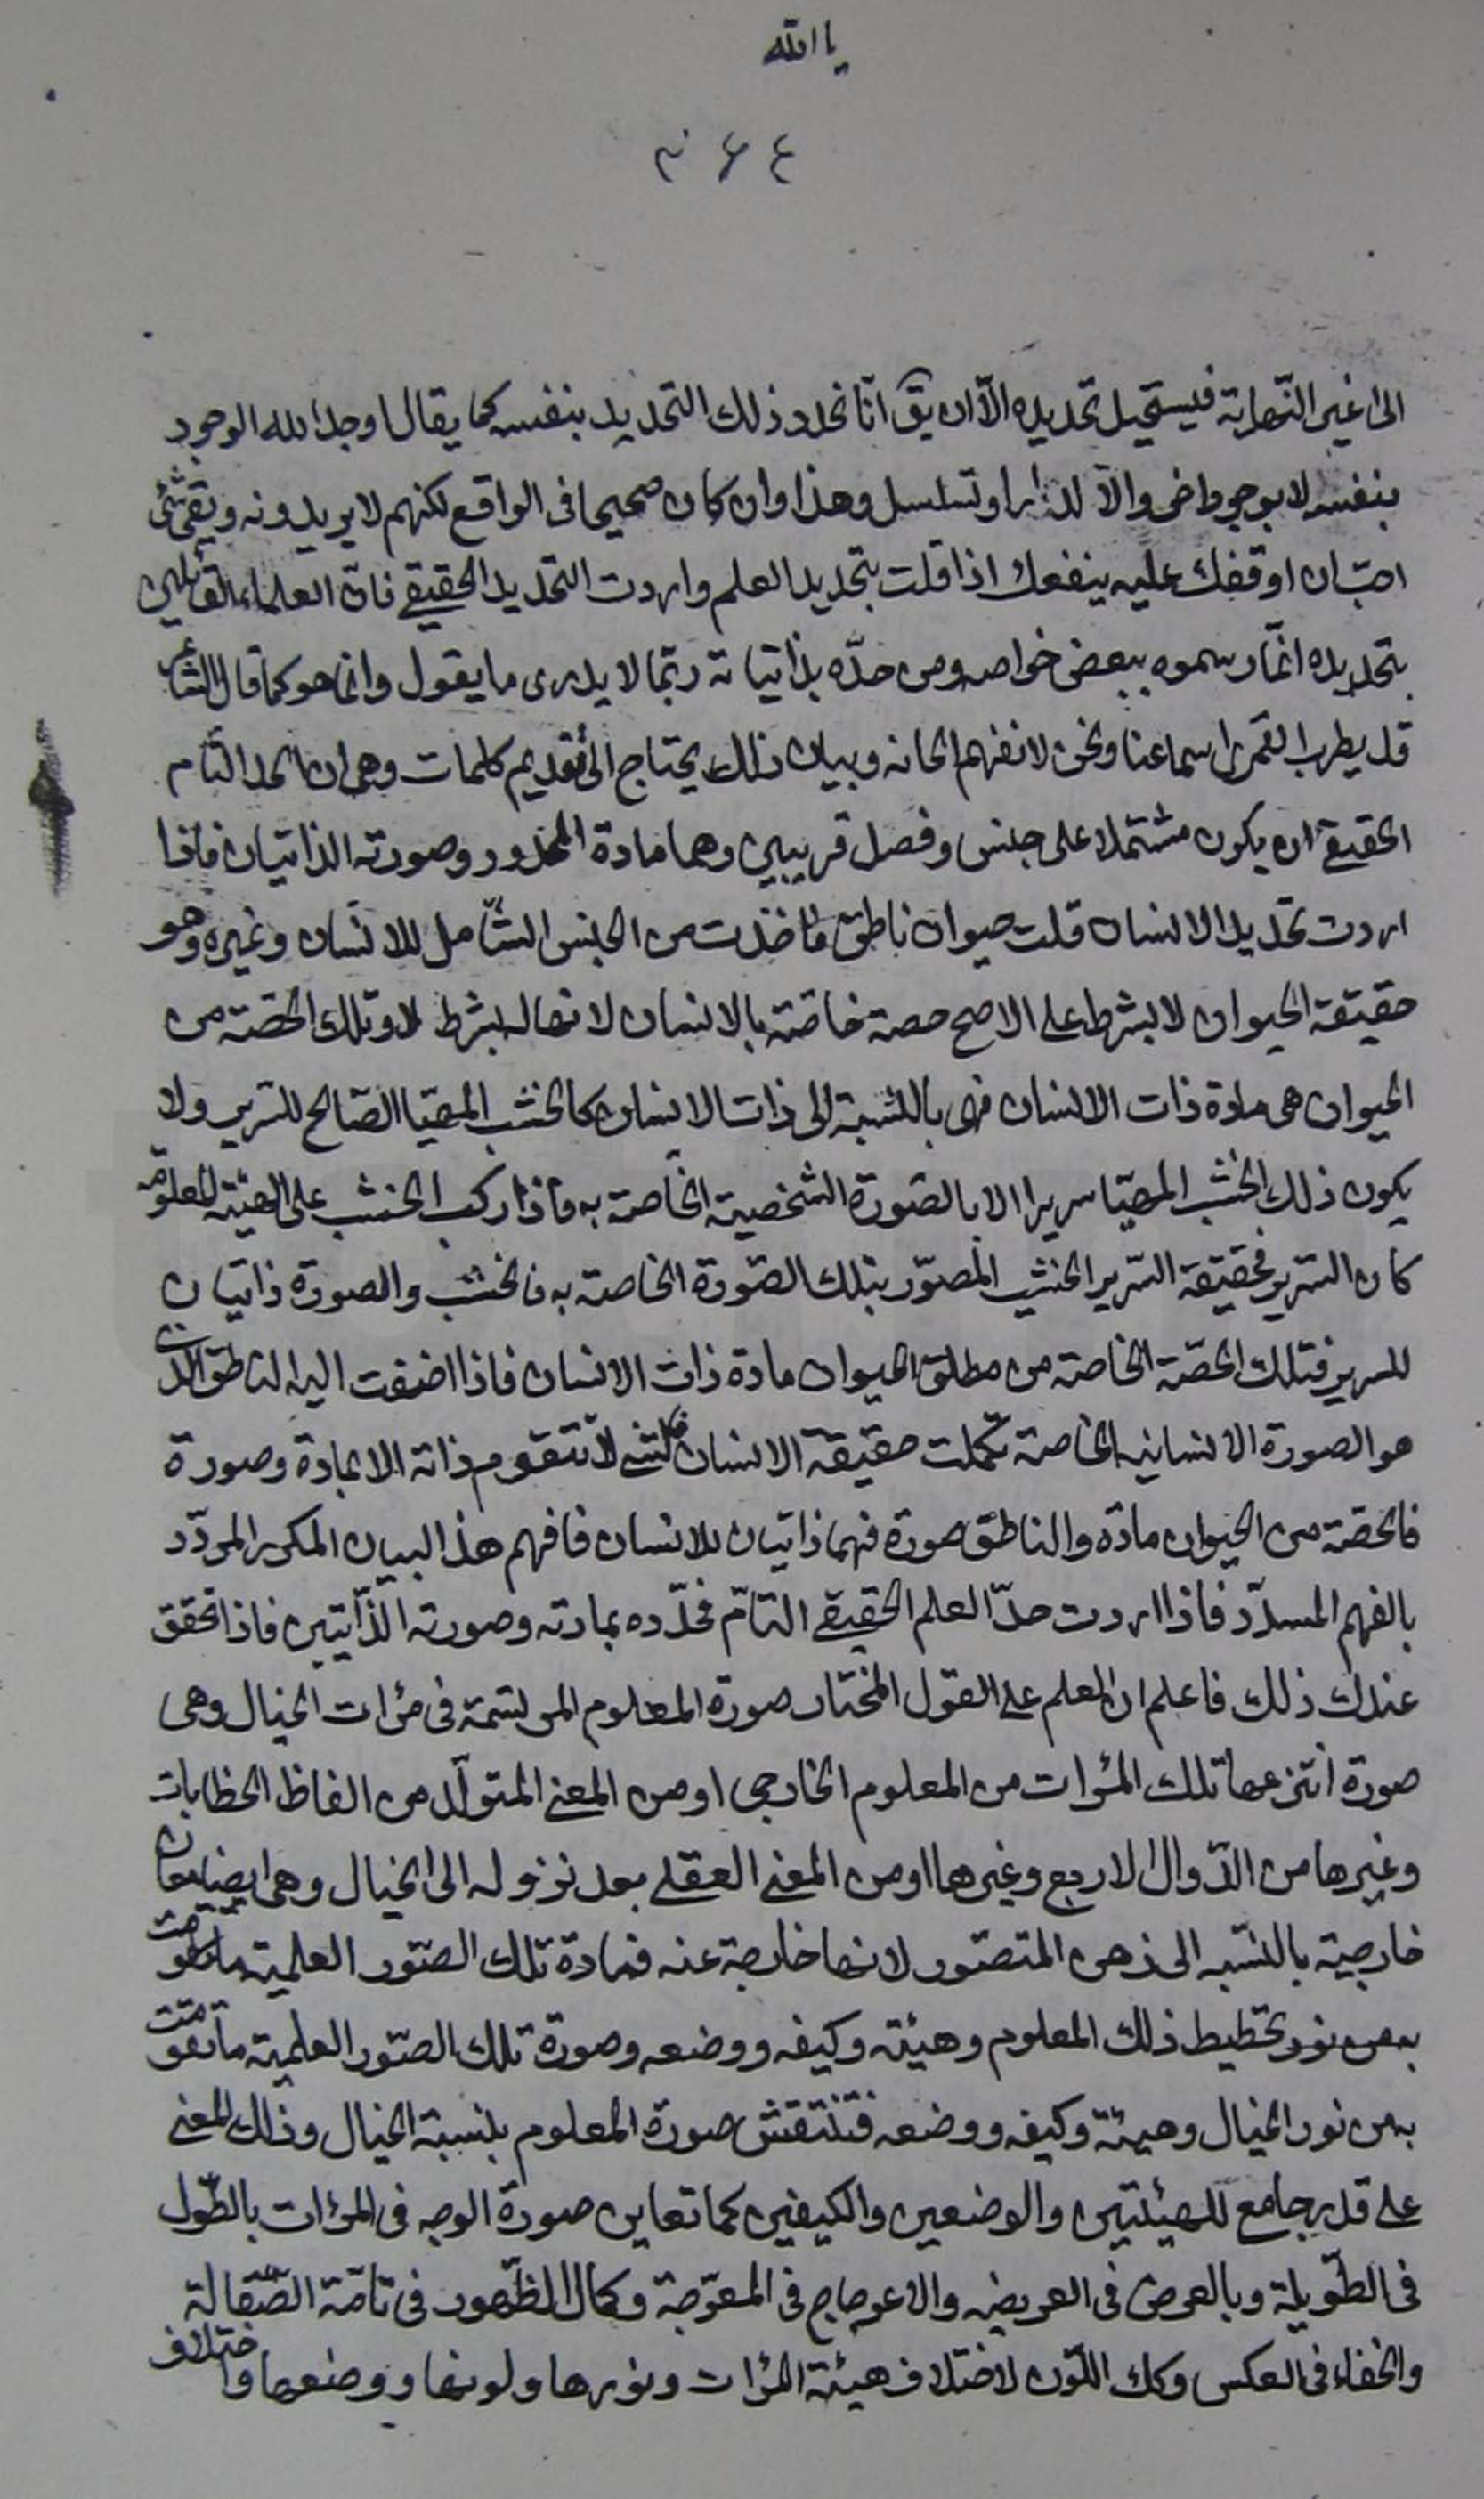 يا الله
٤۶٣
الى غير النّهاية فيستحيل تحديده الّا ان يق انّا نحدد ذلك التحديد بنفسه كما يقال اوجد الله الوجود
بنفسه لا بوجود اخر والّا لدار او تسلسل وهذا وان كان صحيحا فى الواقع لكنهم لا يريدونه وبقى شئ
احبّ ان اوقفك عليه ينفعك اذا قلت بتحديد العلم واردت التحديد الحقيقے فان العلماء القائلين
بتحديده انّما رسموه ببعض خواصه ومن حدّه بذاتياته ربّما لا يدرى ما يقول وانما هو كما قال الشاعر
قد يطرب القمرى اسماعنا ونحن لا نفهم الحانه وبيان ذلك يحتاج الى تقديم كلمات وهى ان الحد التّام
الحقيقے ان يكون مشتملا على جنس وفصل قريبين وهما مادة المحدود وصورته الذاتيان فاذا
اردت تحديد الانسان قلت حيوان ناطق فاخذت من الجنس الشّامل للانسان وغيره وهو
حقيقة الحيوان لا بشرط على الاصح حصة خاصّة بالانسان لانها له بشرط لا وتلك الحصّة من
الحيوان هى مادة ذات الانسان فهى بالنّسبة الى ذات الانسان كالخشب المهيّا الصّالح للسّرير ولا
يكون ذلك الخشب المهيّا سريرا الا بالصّورة الشخصيّة الخاصة به فاذا ركب الخشب على الهيئة المعلومة
كان السّرير فحقيقة السّرير الخشب المصوّر بتلك الصّورة الخاصة به فالخشب والصورة ذاتيان
للسرير فتلك الحصّة الخاصة من مطلق الحيوان مادة ذات الانسان فاذا اضفت اليه الناطق الّذى
هو الصورة الانسانيه الخاصة تكملت حقيقة الانسان فالشے لا تتقوم ذاته الا بمادة وصورة
فالحصّة من الحيوان مادة والناطق صورة فهما ذاتيان للانسان فافهم هذا البيان المكرر المردّد
بالفهم المسدّد فاذا اردت حدّ العلم الحقيقے التامّ فحدّده بمادته وصورته الذّاتيّين فاذا تحقق
عندك ذلك فاعلم ان العلم على القول المختار صورة المعلوم المرتسمة فى مرءات الخيال وهى
صورة انتزعها تلك المرءات من المعلوم الخارجى او من المعنے المتولّد من الفاظ الخطابات
وغيرها من الدّوال الاربع وغيرها او من المعنے العقلے بعد نزوله الى الخيال وهى ايضا معان
خارجية بالنّسبه الى ذهن المتصوّر لانها خارجة عنه فمادة تلك الصّور العلمية ما تقومت
به من نور تخطيط ذلك المعلوم وهيئته وكيفه ووضعه وصورة تلك الصّور العلمية ما تقومت
به من نور الخيال وهيئته وكيفه ووضعه فتنتقش صورة المعلوم بنسبة الخيال وذلك المعنے
على قدر جامع للهيئتين والوضعين والكيفين كما تعاين صورة الوجه فى المرءات بالطّول
فى الطّويلة وبالعرض فى العريضه والاعوجاج فى المعوّجة وكمال الظّهور فى تامّة الصّقالة
والخفاء فى العكس وكك اللّون لاختلاف هيئة المرءات ونورها ولونها ووضعها واختلاف